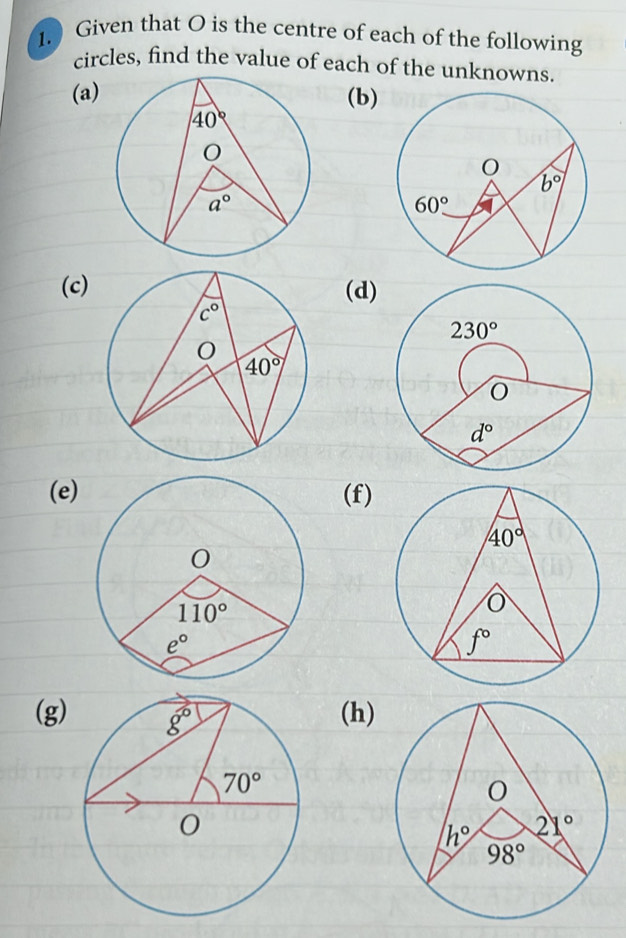 1. Given that O is the centre of each of the following
circles, find the value of each of the unknowns.
(a)
40°
O
a°
(b)
O
b°
60°
(c)
c°
O
40°
(d)
230°
O
d°
(e)
O
110°
e°
(f)
40°
O
f°
(g)
g°
70°
O
(h)
O
h°
21°
98°